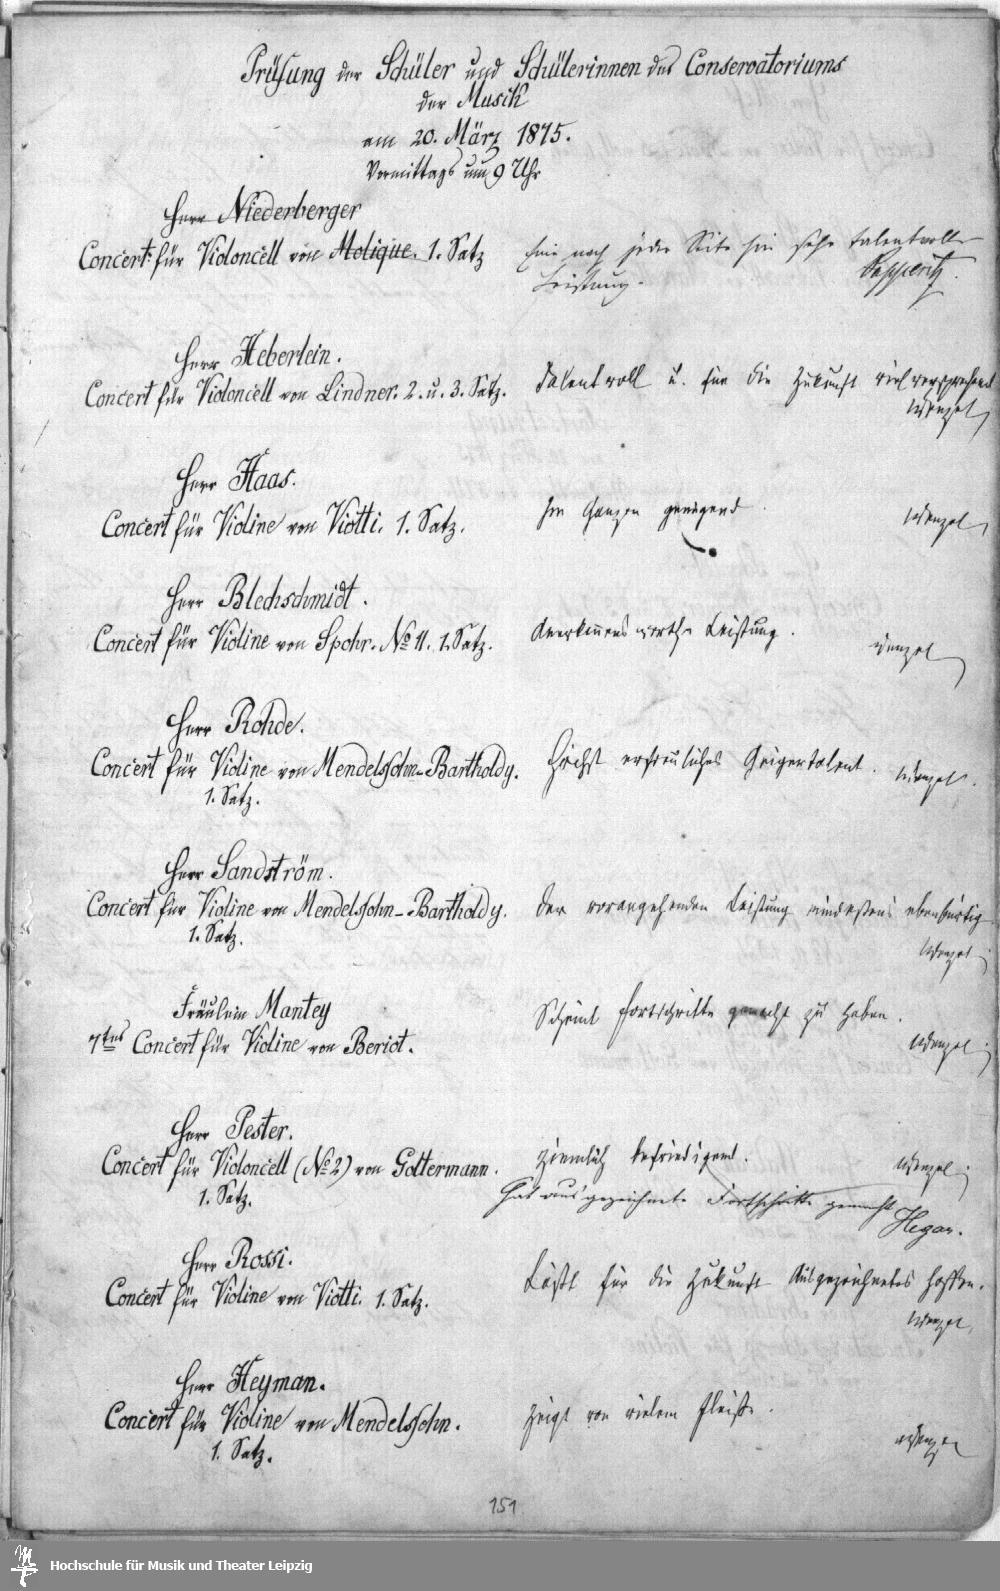 Prüfung der Schüler und Schülerinnen des Conservatoriums
der Musik
am 20. März 1875.
Vormittags um 9 Uhr
Herr Niederberger
Concert für Violoncell von Molique. 1. Satz
Eine nach jeder Seite hin sehr talentvolle
Leistung. Papperitz.
Herr Heberlein.
Concert für Violoncell von Lindner. 2. u. 3. Satz.
Talentvoll u. für die Zukunft vielversprechend
Wenzel
Herr Haas.
Concert für Violine von Viotti. 1. Satz.
Im Ganzen genügend.
Wenzel
Herr Blechschmidt.
Concert für Violine von Spohr. No 11. 1. Satz.
Anerkennenswerthe Leistung.
Wenzel
Herr Rohde.
Concert für Violine von Mendelssohn-Bartholdy.
1. Satz.
Höchst erfreuliches Geigertalent. Wenzel.
Herr Sandström.
Concert für Violine von Mendelssohn-Bartholdy.
1. Satz.
Der vorangehenden Leistung mindestens ebenbürtig
Wenzel
Fräulein Mantey
7tes Concert für Violine von Beriot.
Scheint Fortschritte gemacht zu haben.
Wenzel
Herr Pester.
Concert für Violoncell (No 2) von Goltermann.
1. Satz.
Ziemlich befriedigend.
Wenzel
Hat ausgezeichnete Fortschritte gemacht
Hegar.
Herr Rossi.
Concert für Violine von Viotti. 1. Satz.
Läßt für die Zukunft Ausgezeichnetes hoffen.
Wenzel
Herr Heyman.
Concert für Violine von Mendelssohn.
1. Satz.
Zeigt von vielem Fleiße.
Wenzel
151
Hochschule für Musik und Theater Leipzig